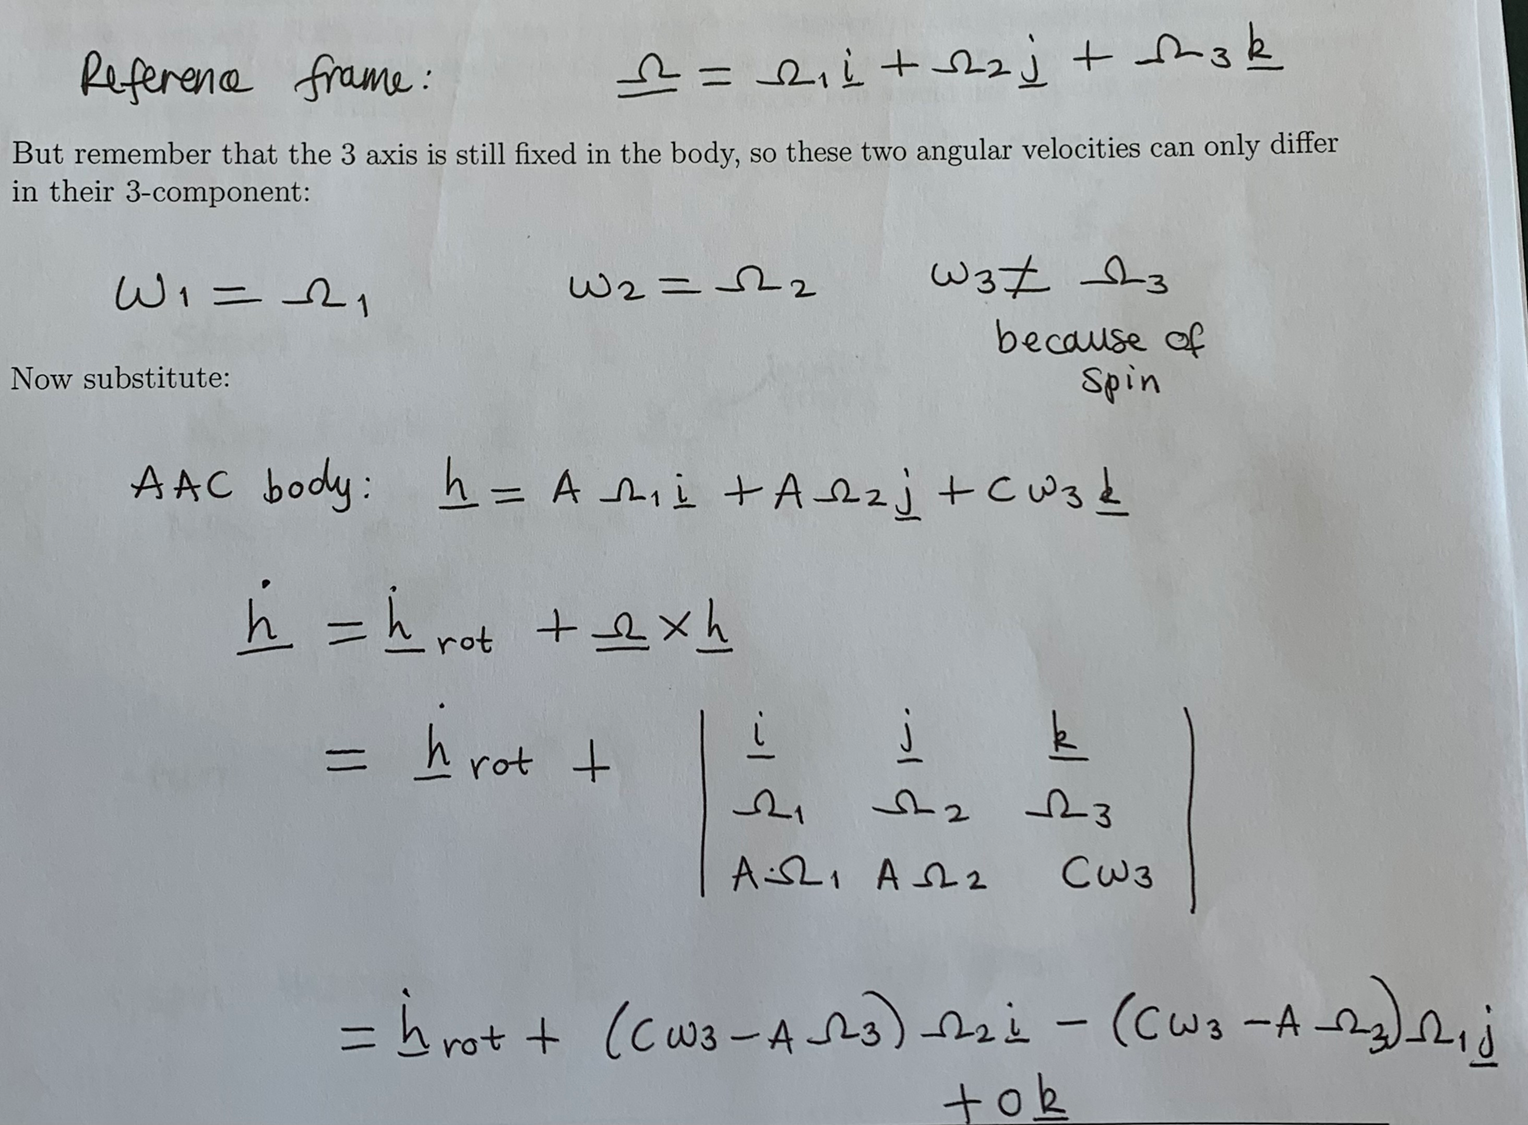 Reference frame: Ω = Ω₁ i + Ω₂ j + Ω₃ k
But remember that the 3 axis is still fixed in the body, so these two angular velocities can only differ
in their 3-component:
ω₁ = Ω₁ ω₂ = Ω₂ ω₃ ≠ Ω₃
because of
spin
Now substitute:
AAC body: h = A Ω₁ i + A Ω₂ j + C ω₃ k
ḣ = ḣ rot + Ω × h
= ḣ rot + | i j k |
Ω₁ Ω₂ Ω₃
AΩ₁ AΩ₂ Cω₃
= ḣ rot + (Cω₃ - A Ω₃) Ω₂ i - (Cω₃ - A Ω₃) Ω₁ j
+ 0 k